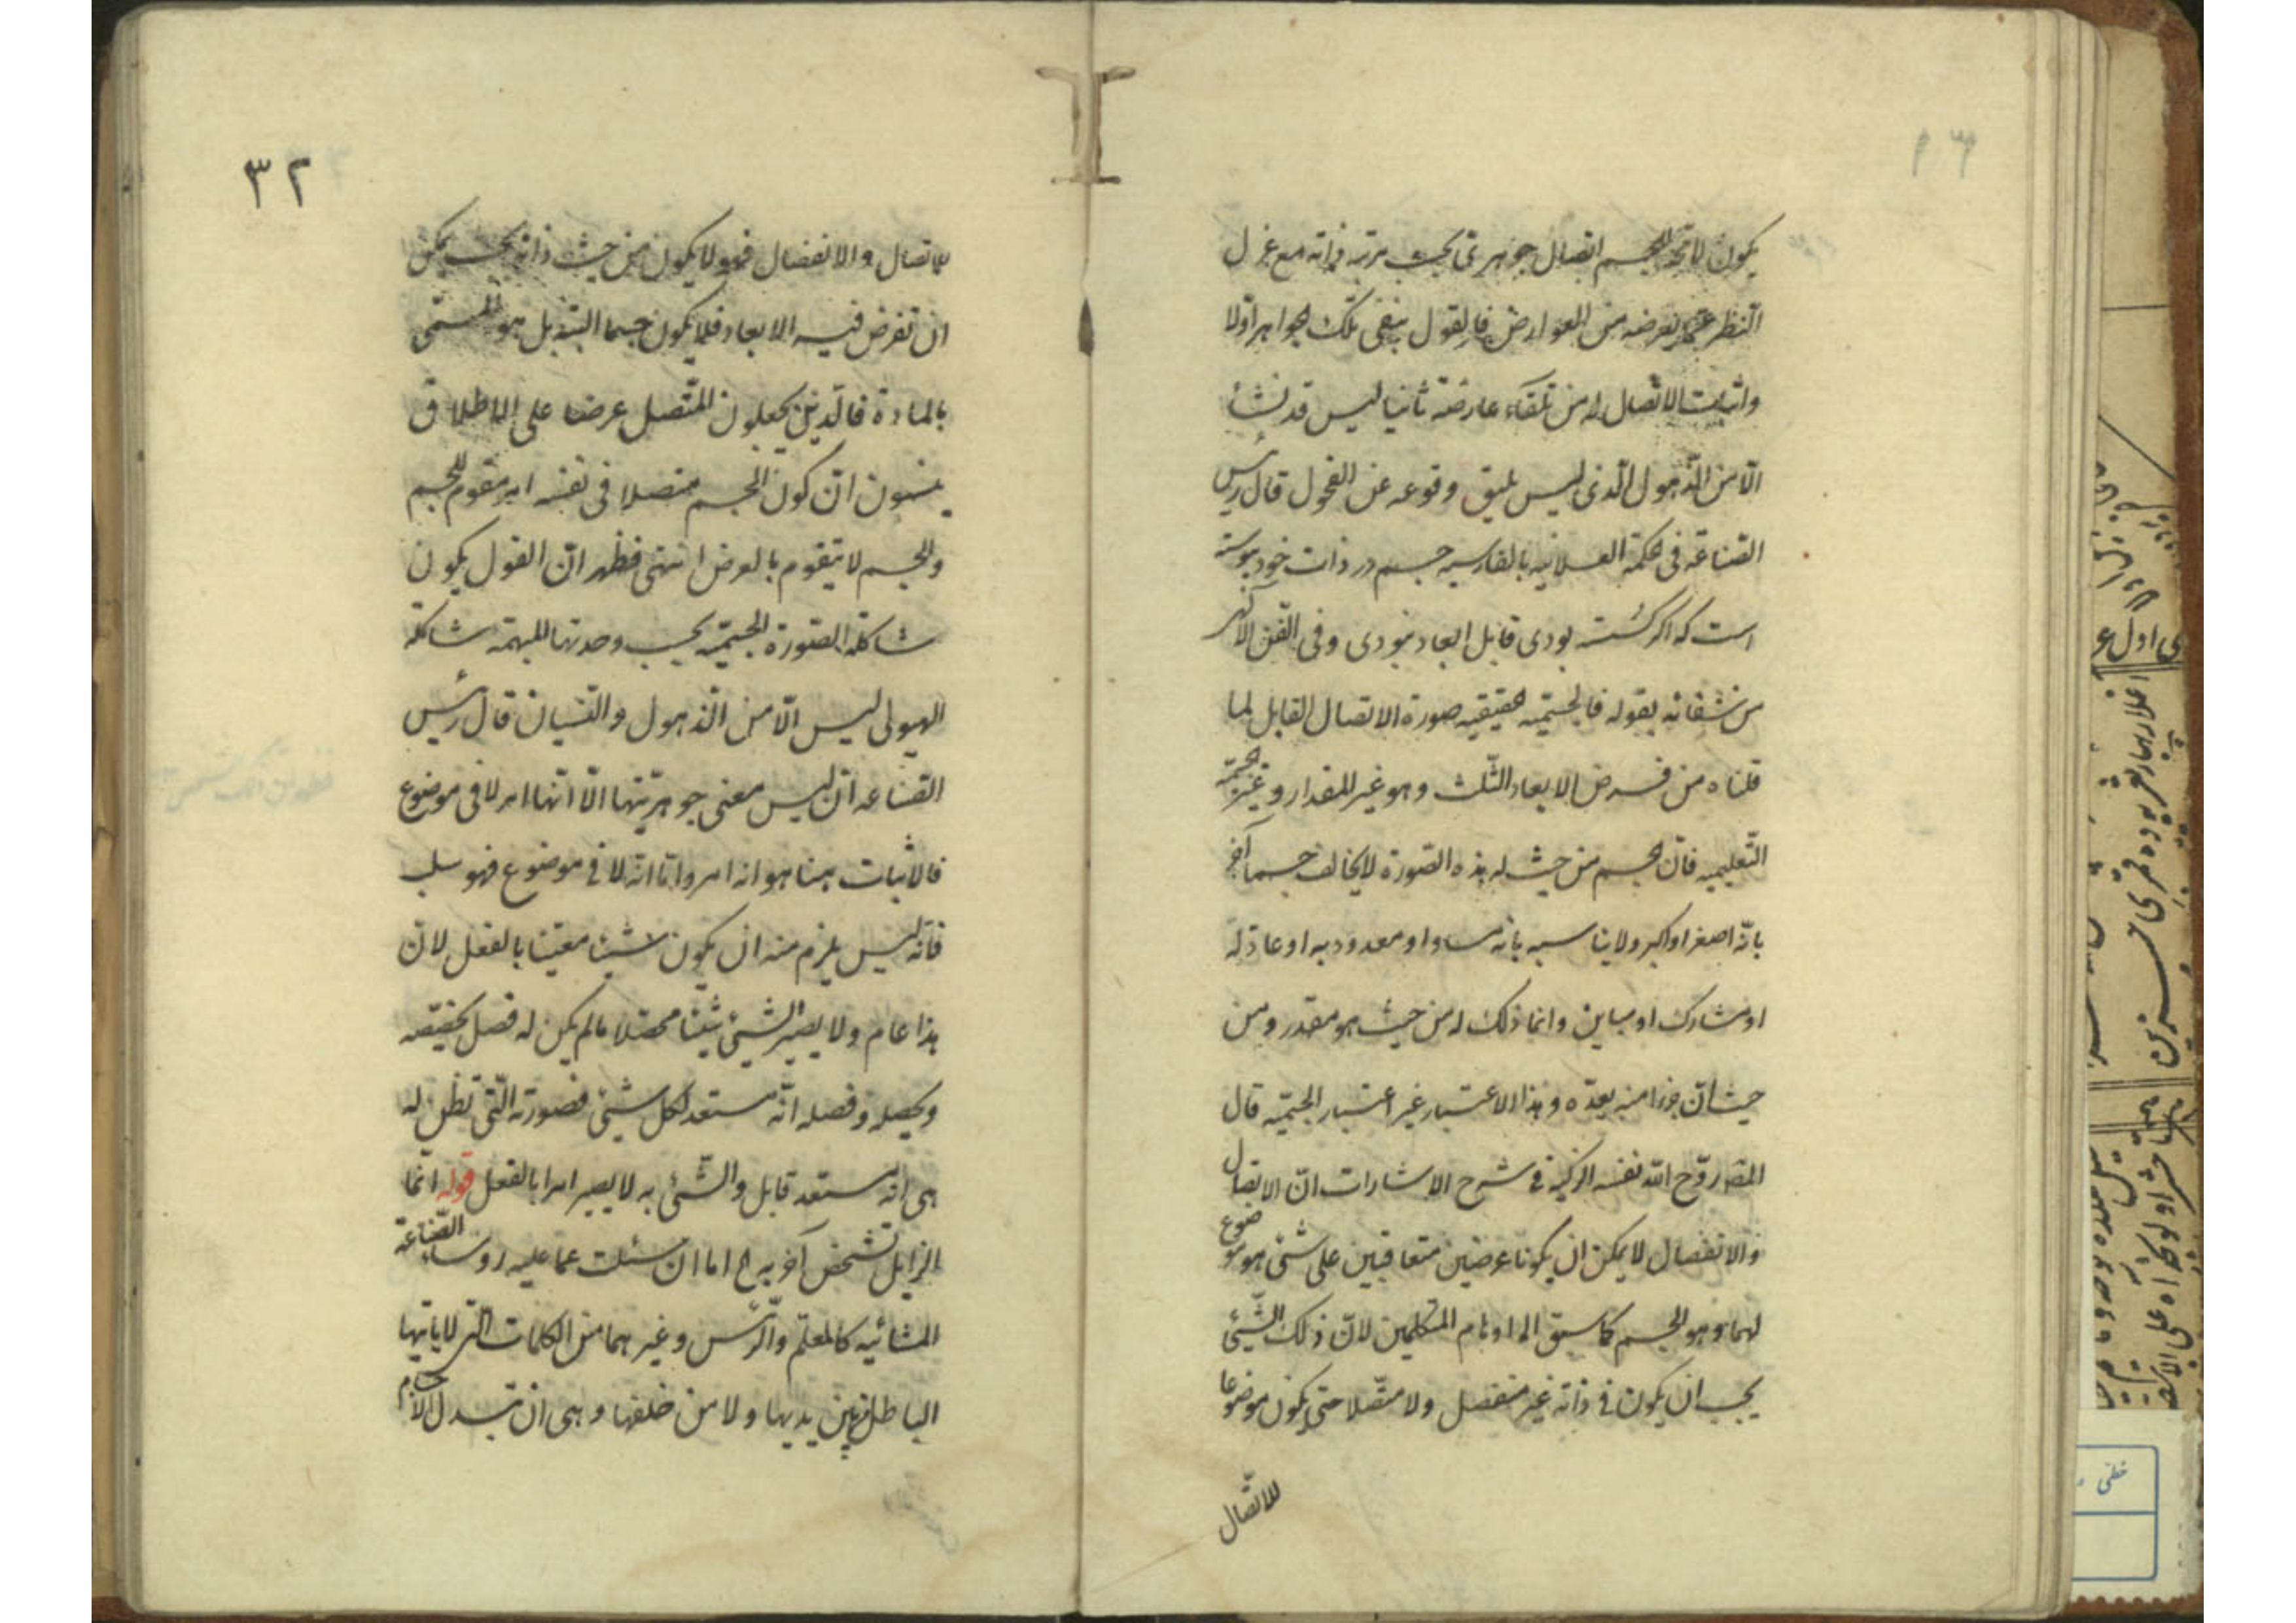 يكون لا تجد للجسم اتصال جوهرى بحسب مرتبة ذاته مع عزل
النظر عما يعرضه من العوارض فالقول بنفى تلك الجواهر اولا
واثبات الاتصال له من تلقاء عارضه ثانيا ليس قد نشأ
الّا من الذّهول الّذى ليس يليق وقوعه عن الفحول قال رئيس
الصّناعة فى الحكمة العلائيه بالفارسيه جسم در ذات خود پيوسته
است كه اكر كسسته بودى قابل ابعاد نبودى وفى الفن الآخر
من شفائه بقوله فالجسميّه الحقيقيه صورة الاتصال القابل لما
قلناه من فرض الابعاد الثلث وهو غير المقدار وغير الجسميّة
التّعليميه فان الجسم من حيث له هذه الصّورة لا يخالف جسما آخر
بانّه اصغر او اكبر ولا يناسبه بانه مساو او معدود به او عاد له
او مشارك او مباين وانما ذلك له من حيث هو مقدر ومن
حيث ان جزءا منه يعدّه وهذا الاعتبار غير اعتبار الجسميّه قال
المصّ روّح الله نفسه الزكيّة فى شرح الاشارات انّ الاتصال
والانفصال لا يمكن ان يكونا عرضين متعاقبين على شئ هو موضوع
لهما وهو الجسم كما سبق الى اوهام المتكلمين لانّ ذلك الشّيئ
يجب ان يكون فى ذاته غير منفصل ولا متّصلا حتى يكون موضوعا
للاتّصال
٣٢
للاتصال والانفصال فهو لا يكون من حيث ذاته بحيث يمكن
ان تفرض فيه الابعاد فلا يكون جسما البتة بل هو المسمّى
بالمادة فالّذين يجعلون المتّصل عرضا على الاطلاق
ينسون انّ كون الجسم متصلا فى نفسه امر مقوم للجسم
والجسم لا يتقوم بالعرض انتهى فظهر انّ القول بكون
شاكلة الصّورة الجسميّه بحسب وحدتها المبهمة شاكلة
الهيولى ليس الّا من الذهول والنّسيان قال رئيس
الصّناعه ان ليس معنى جوهريّتها الّا انّها امر لا فى موضوع
فالاثبات ههنا هو انه امر وامّا انّه لا فى موضوع فهو سلب
فانّه ليس يلزم منه ان يكون شيئا معيّنا بالفعل لان
هذا عام ولا يصير الشّيئ شيئا محصّلا ما لم يكن له فصل يحصّه
ويحصله وفصله انّه مستعد لكل شيئ فصورته الّتى تظن له
هى انّه مستعد قابل والشّئ به لا يصير امرا بالفعل قوله انما
الزايل تشخص آخر به اه اما ان سئلت عما عليه روساء الصّناعة
المشائيه كالمعلّم والرّئيس وغيرهما من الكلمات التى لا يأتيها
الباطل من بين يديها ولا من خلفها وهى ان تبدل الاجسام